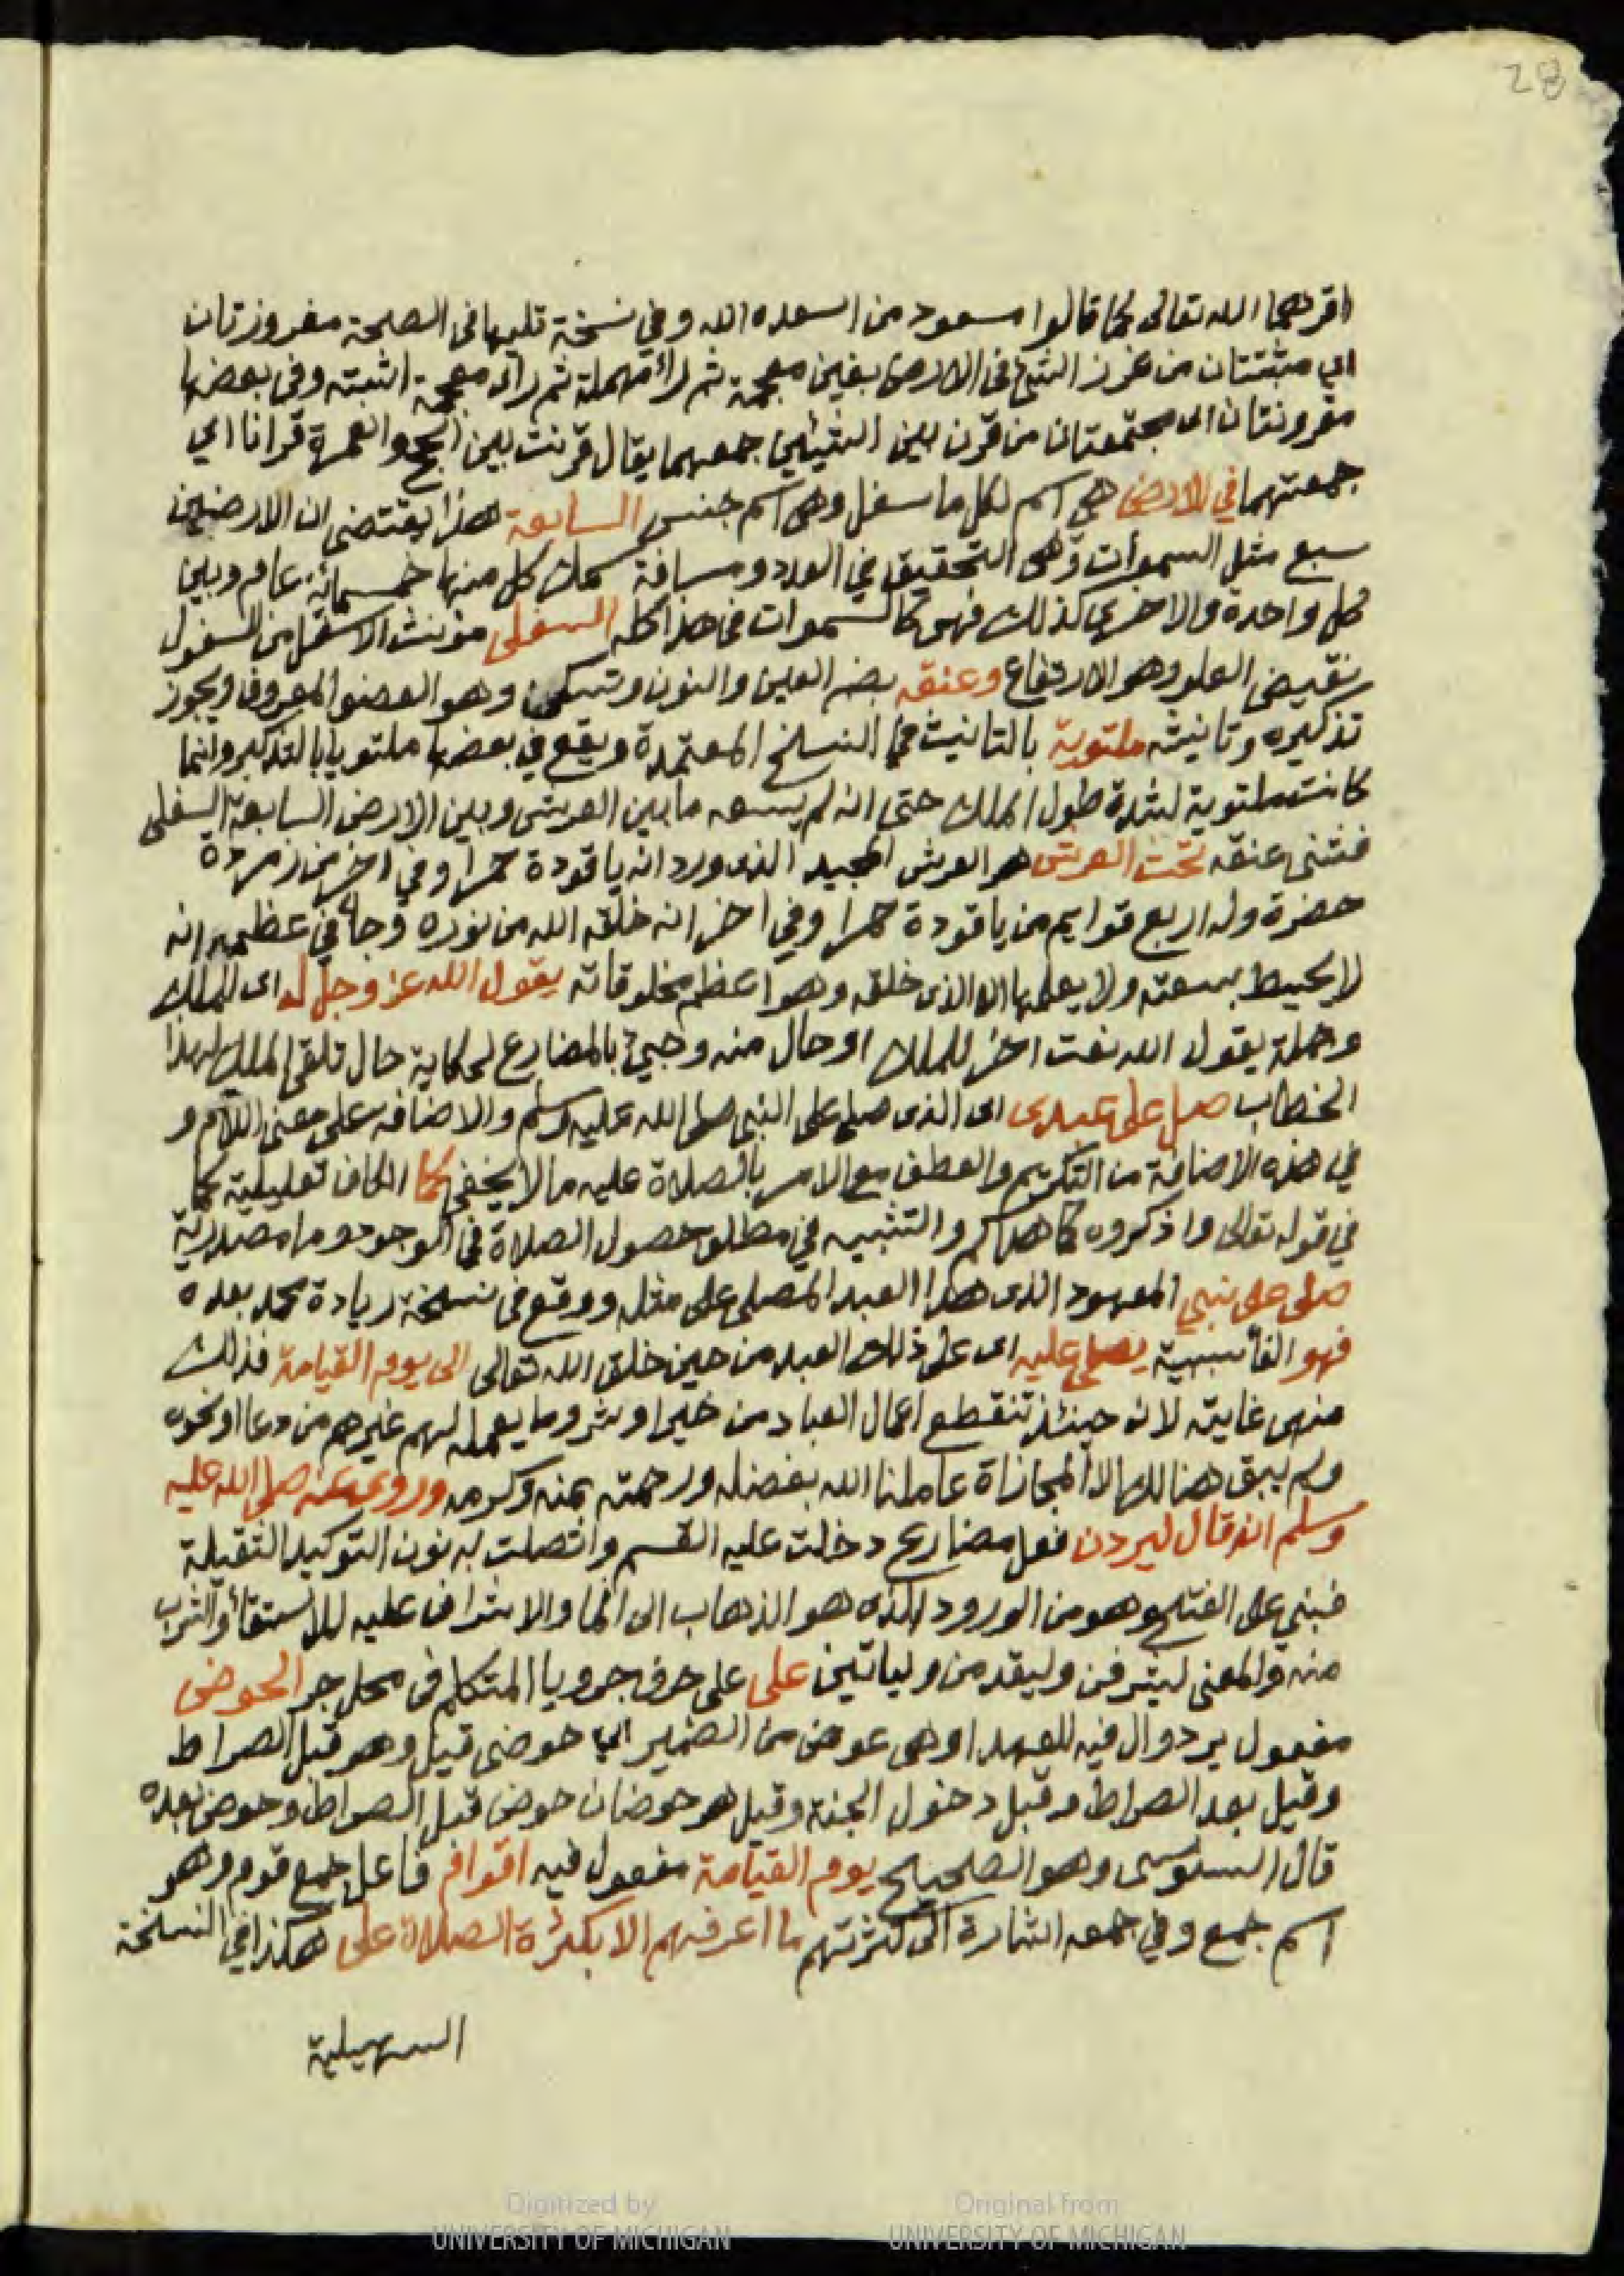 28
اقرهما الله تعالى كما قالوا مسعود من اسعده الله وفي نسخة تليها في الصحة مغروزتان
اي مثبتتان من غرز الشئ في الارض بغين معجمة ثم راء مهملة ثم زاى معجمة اثبته وفي بعضها
مقرونتان اى مجتمعتان من قرن بين الشيئين جمعهما يقال قرنت بين الحج والعمرة قرانا اي
جمعتهما في الارض هي اسم لكل ما سفل وهي اسم جنس السابعة هذا يقتضى ان الارضين
سبع مثل السموات وهى التحقيق في العدد ومسافة سمك كل منها خمسمائة عام وبين
كل واحدة والاخرى كذلك فهى كالسموات في هذا كله السفلى مؤنث الاسفل من السفول
نقيض العلو وهو الارتفاع وعنقه بضم العين والنون وتسكن وهو العضو المعروف ويجوز
تذكيره وتانيثه ملتوية بالتانيث في النسخ المعتمدة ويقع في بعضها ملتويا بالتذكير وانما
كانت ملتوية لشدة طول الملك حتى انه لم يسعه ما بين العرش وبين الارض السابعة السفلى
فثنى عنقه تحت العرش هو العرش المجيد الذى ورد انه ياقودة حمرا وفي اخر من زمردة
خضرة وله اربع قوايم من ياقودة حمرا وفي اخر انه خلقه الله من نوره وجا في عظمه انه
لا يحيط بسعته ولا يعلمها الا الذى خلقه وهو اعظم مخلوقاته يقول الله عز وجل له اى للملك
وجملة يقول الله نعت اخر للملك او حال منه وجيئ بالمضارع لحكاية حال تلقى الملك لهذا
الخطاب صل على عبدى اى الذى صلى على النبي صلى الله عليه وسلم والاضافه على معنى اللام و
في هذه الاضافة من التكريم والعطف مع الامر بالصلاة عليه ما لا يخفى كما الكاف تعليلية كما
في قوله تعالى واذكروه كما هداكم والتشبيه في مطلق حصول الصلاة في الوجود وما مصدرية
صلى على نبي المعهود الذى هذا العبد المصلى على مثله ووقع في نسخة زيادة محمد بعده
فهو الفا سببية يصلى عليه اى على ذلك العبد من حين خلق الله تعالى الى يوم القيامة فذلك
منهى غايته لانه حينئذ تنقطع اعمال العباد من خير او شر وما يعمله لهم غيرهم من دعا او نحوه
ولم يبق هنالك الا المجازاة عاملنا الله بفضله ورحمته بمنه وكرمه وروى عنه صلى الله عليه
وسلم انه قال ليردن فعل مضارع دخلت عليه القسم واتصلت به نون التوكيد الثقيلة
فبني على الفتح وهو من الورود الذى هو الذهاب الى الما والاشراف عليه للاستقا والشرب
منه والمعنى ليشرفن وليقدمن ولياتين على على حرف جر ويا المتكلم في محل جر الحوض
مفعول يرد وال فيه للعهد او هى عوض من الضمير اي حوضى قيل وهو قبل الصراط
وقيل بعد الصراط وقبل دخول الجنة وقيل هو حوضان حوض قبل الصراط وحوض بعده
قال السنوسى وهو الصحيح يوم القيامة مفعول فيه اقوام فاعل جمع قوم وهو
اسم جمع وفي جمعه اشارة الى كثرتهم ما اعرفهم الا بكثرة الصلاة على هكذا في النسخة
السهيلية
Digitized by
UNIVERSITY OF MICHIGAN
Original from
UNIVERSITY OF MICHIGAN